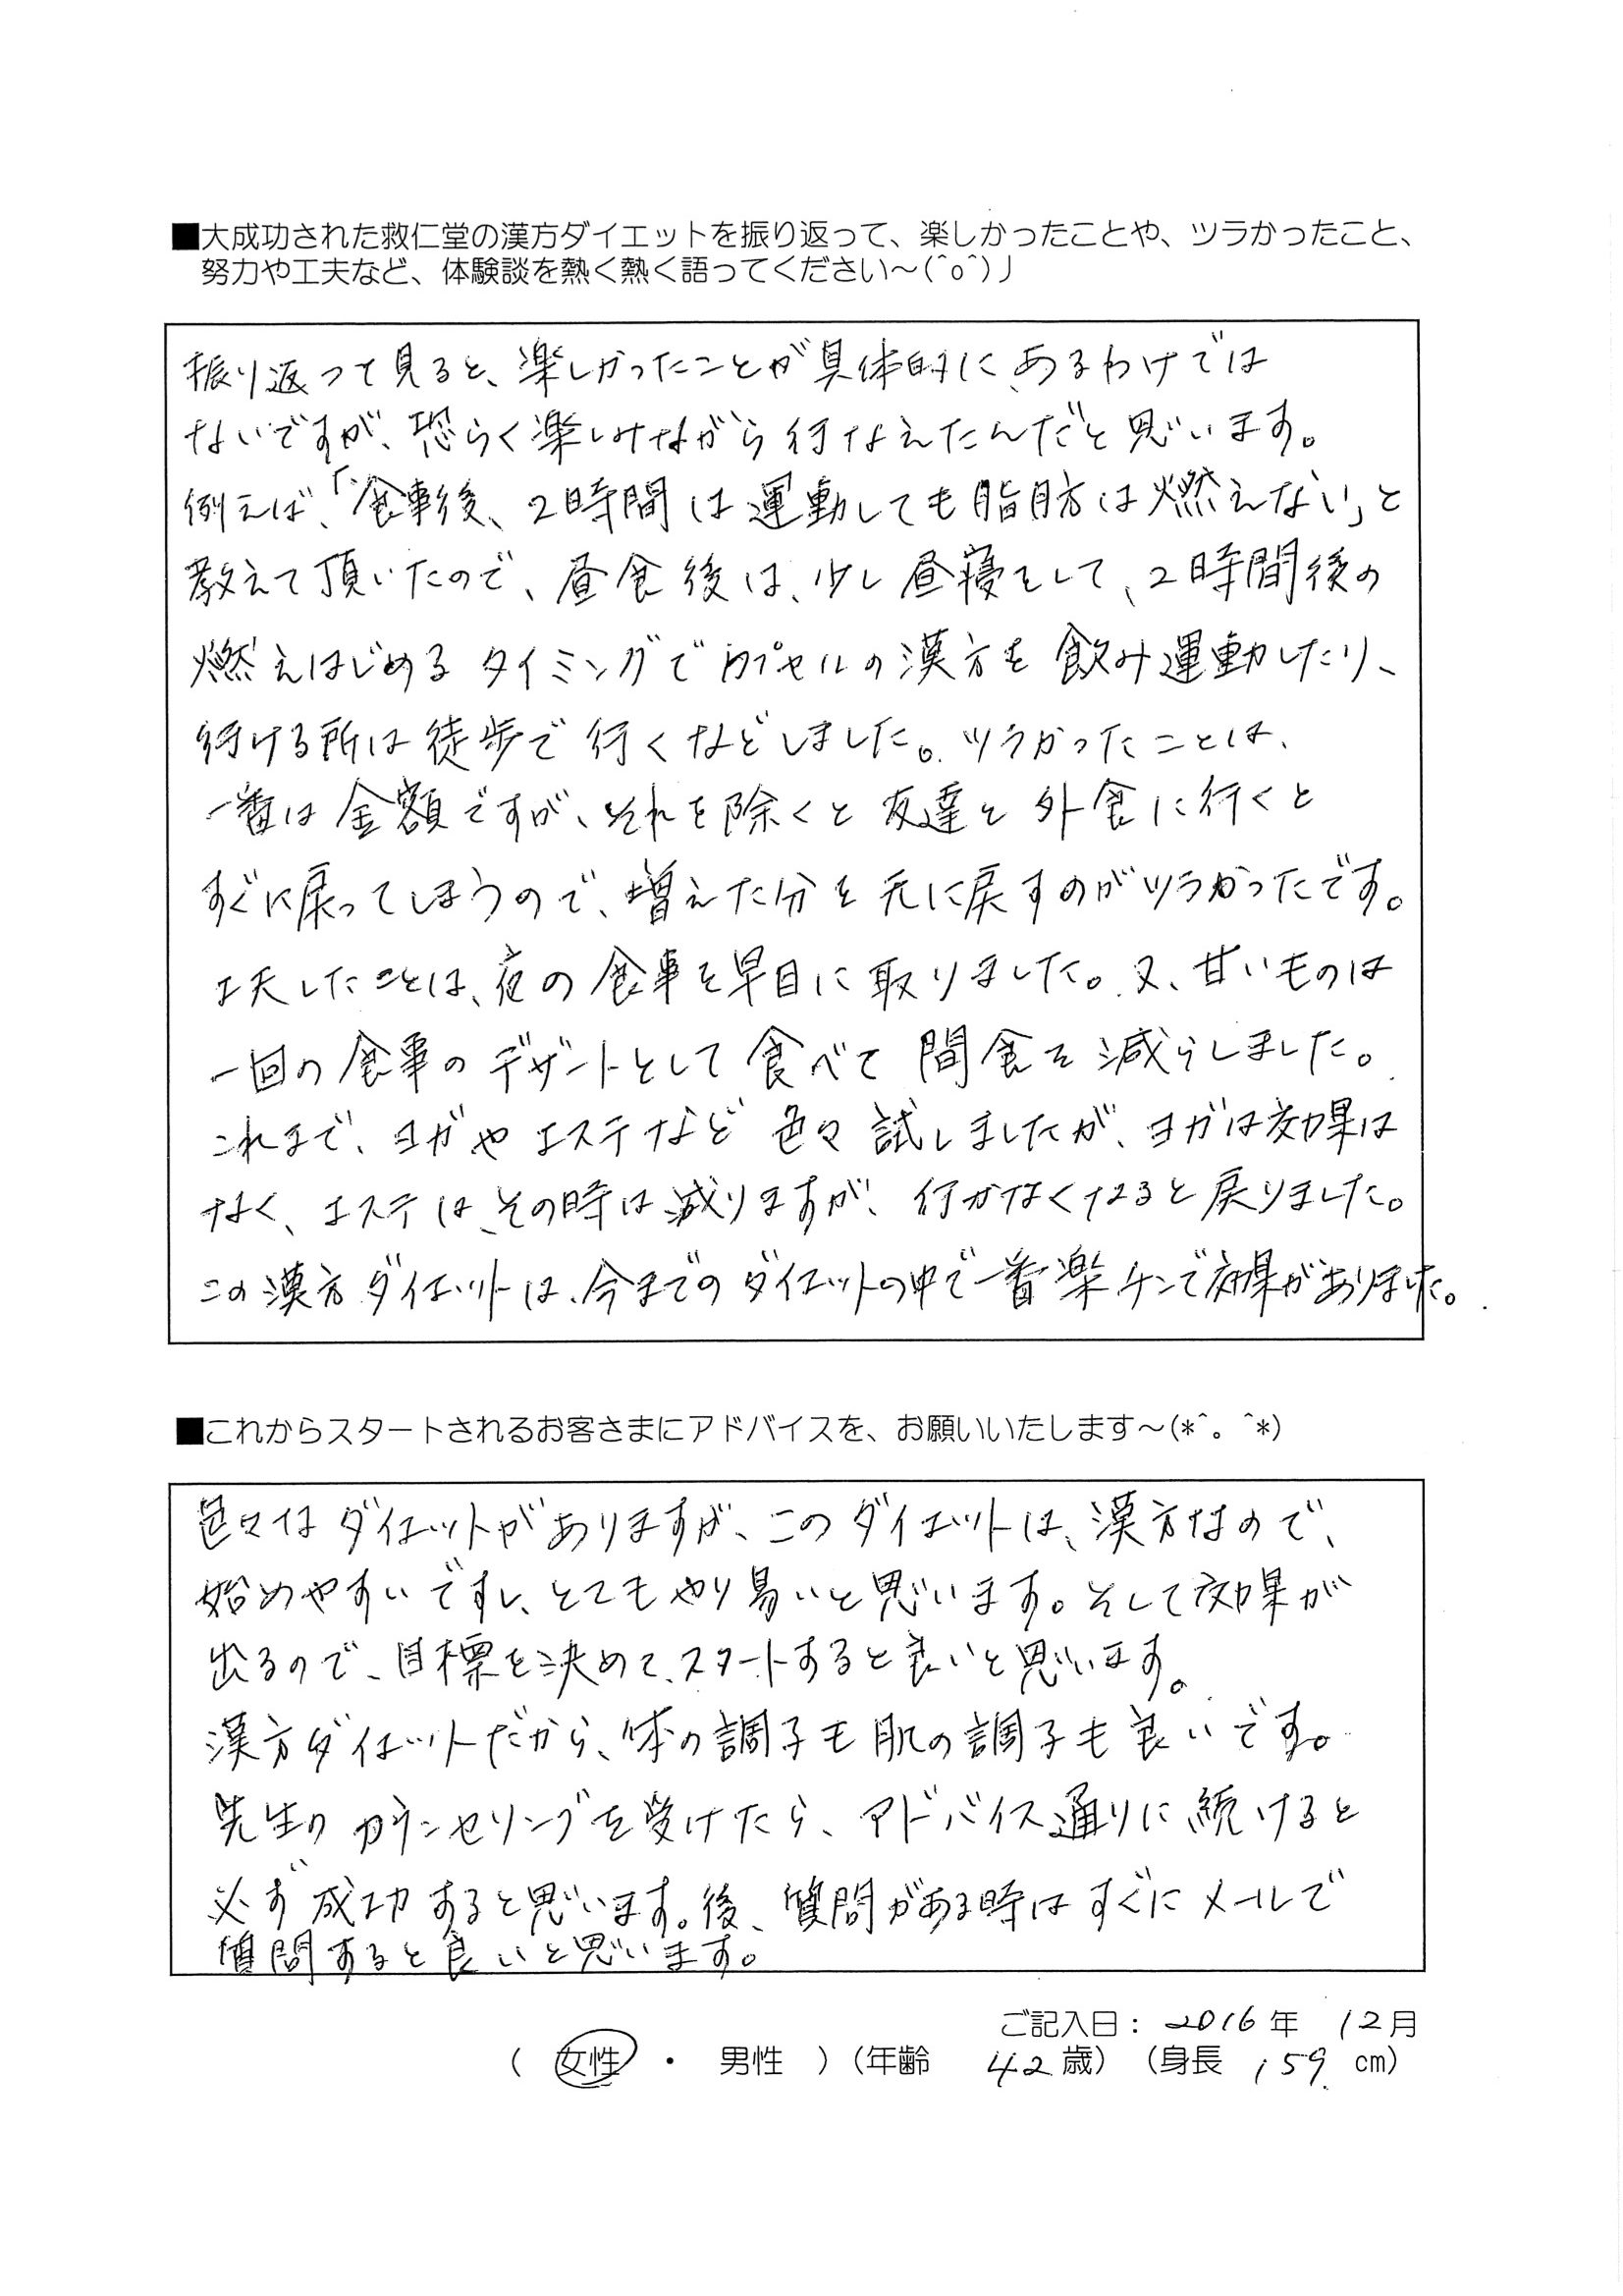 ■大成功された救仁堂の漢方ダイエットを振り返って、楽しかったことや、ツラかったこと、
努力や工夫など、体験談を熱く熱く語ってください～(^o^)丿
振り返って見ると、楽しかったことが具体的に、あるわけでは
ないですが、恐らく楽しみながら行なえたんだと思います。
例えば、「食事後、2時間は運動しても脂肪は燃えない」と
教えて頂いたので、昼食後は、少し昼寝をして、2時間後の
燃えはじめるタイミングでカプセルの漢方を飲み運動したり、
行ける所は徒歩で行くなどしました。ツラかったことは、
一番は金額ですが、それを除くと友達と外食に行くと
すぐに戻ってしまうので、増えた分を元に戻すのがツラかったです。
工夫したことは、夜の食事を早目に取りました。又、甘いものは
一回の食事のデザートとして食べて間食を減らしました。
これまで、ヨガやエステなど色々試しましたが、ヨガは効果は
なく、エステは、その時は減りますが、行かなくなると戻りました。
この漢方ダイエットは、今までのダイエットの中で一番楽チンで効果がありました。
■これからスタートされるお客さまにアドバイスを、お願いいたします～(*^。^*)
色々なダイエットがありますが、このダイエットは、漢方なので、
始めやすいですし、とてもやり易いと思います。そして効果が
出るので、目標を決めて、スタートすると良いと思います。
漢方ダイエットだから、体の調子も肌の調子も良いです。
先生のカウンセリングを受けたら、アドバイス通りに続けると
必ず成功すると思います。後、質問がある時はすぐにメールで
質問すると良いと思います。
ご記入日： 2016年 12月
（ 女性 ・ 男性 ）（年齢 42歳）（身長 159 cm）